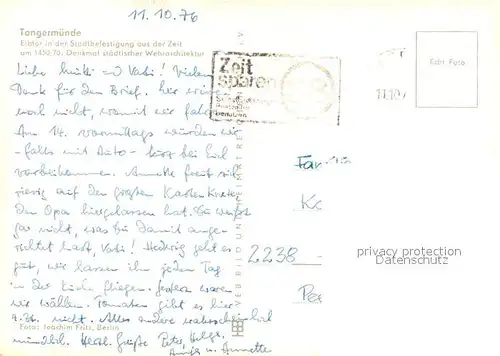 11.10.76
Tangermünde
Elbtor in der Stadtbefestigung aus der Zeit
um 1450/70. Denkmal städtischer Wehrarchitektur
Zeit
sparen
Echt Foto
Liebe Mutti und Vati! Vielen
Dank für den Brief. Wir
noch nicht, womit wir fahren
Am 14. vormittags würden wir
- falls mit Auto - kurz bei Euch
vorbeikommen. Annette freut sich
riesig auf den großen Kasten
den Opa hiergelassen hat. Du weißt
gar nicht, was Du damit ange-
richtet hast, Vati! Hedwig geht es
gut, wir lassen ihn jeden Tag
in der Küche fliegen. Gestern waren
wir wählen. Tomaten gibt es hier
z.Zt. nicht. Alles andere wahrscheinlich
mündlich. Herzl. Grüße Peter, Helga,
u. Annette
Fam.
2238
privacy protection
Datenschutz
VEB BILD UND HEIMAT REI
Foto: Joachim Fritz, Berlin